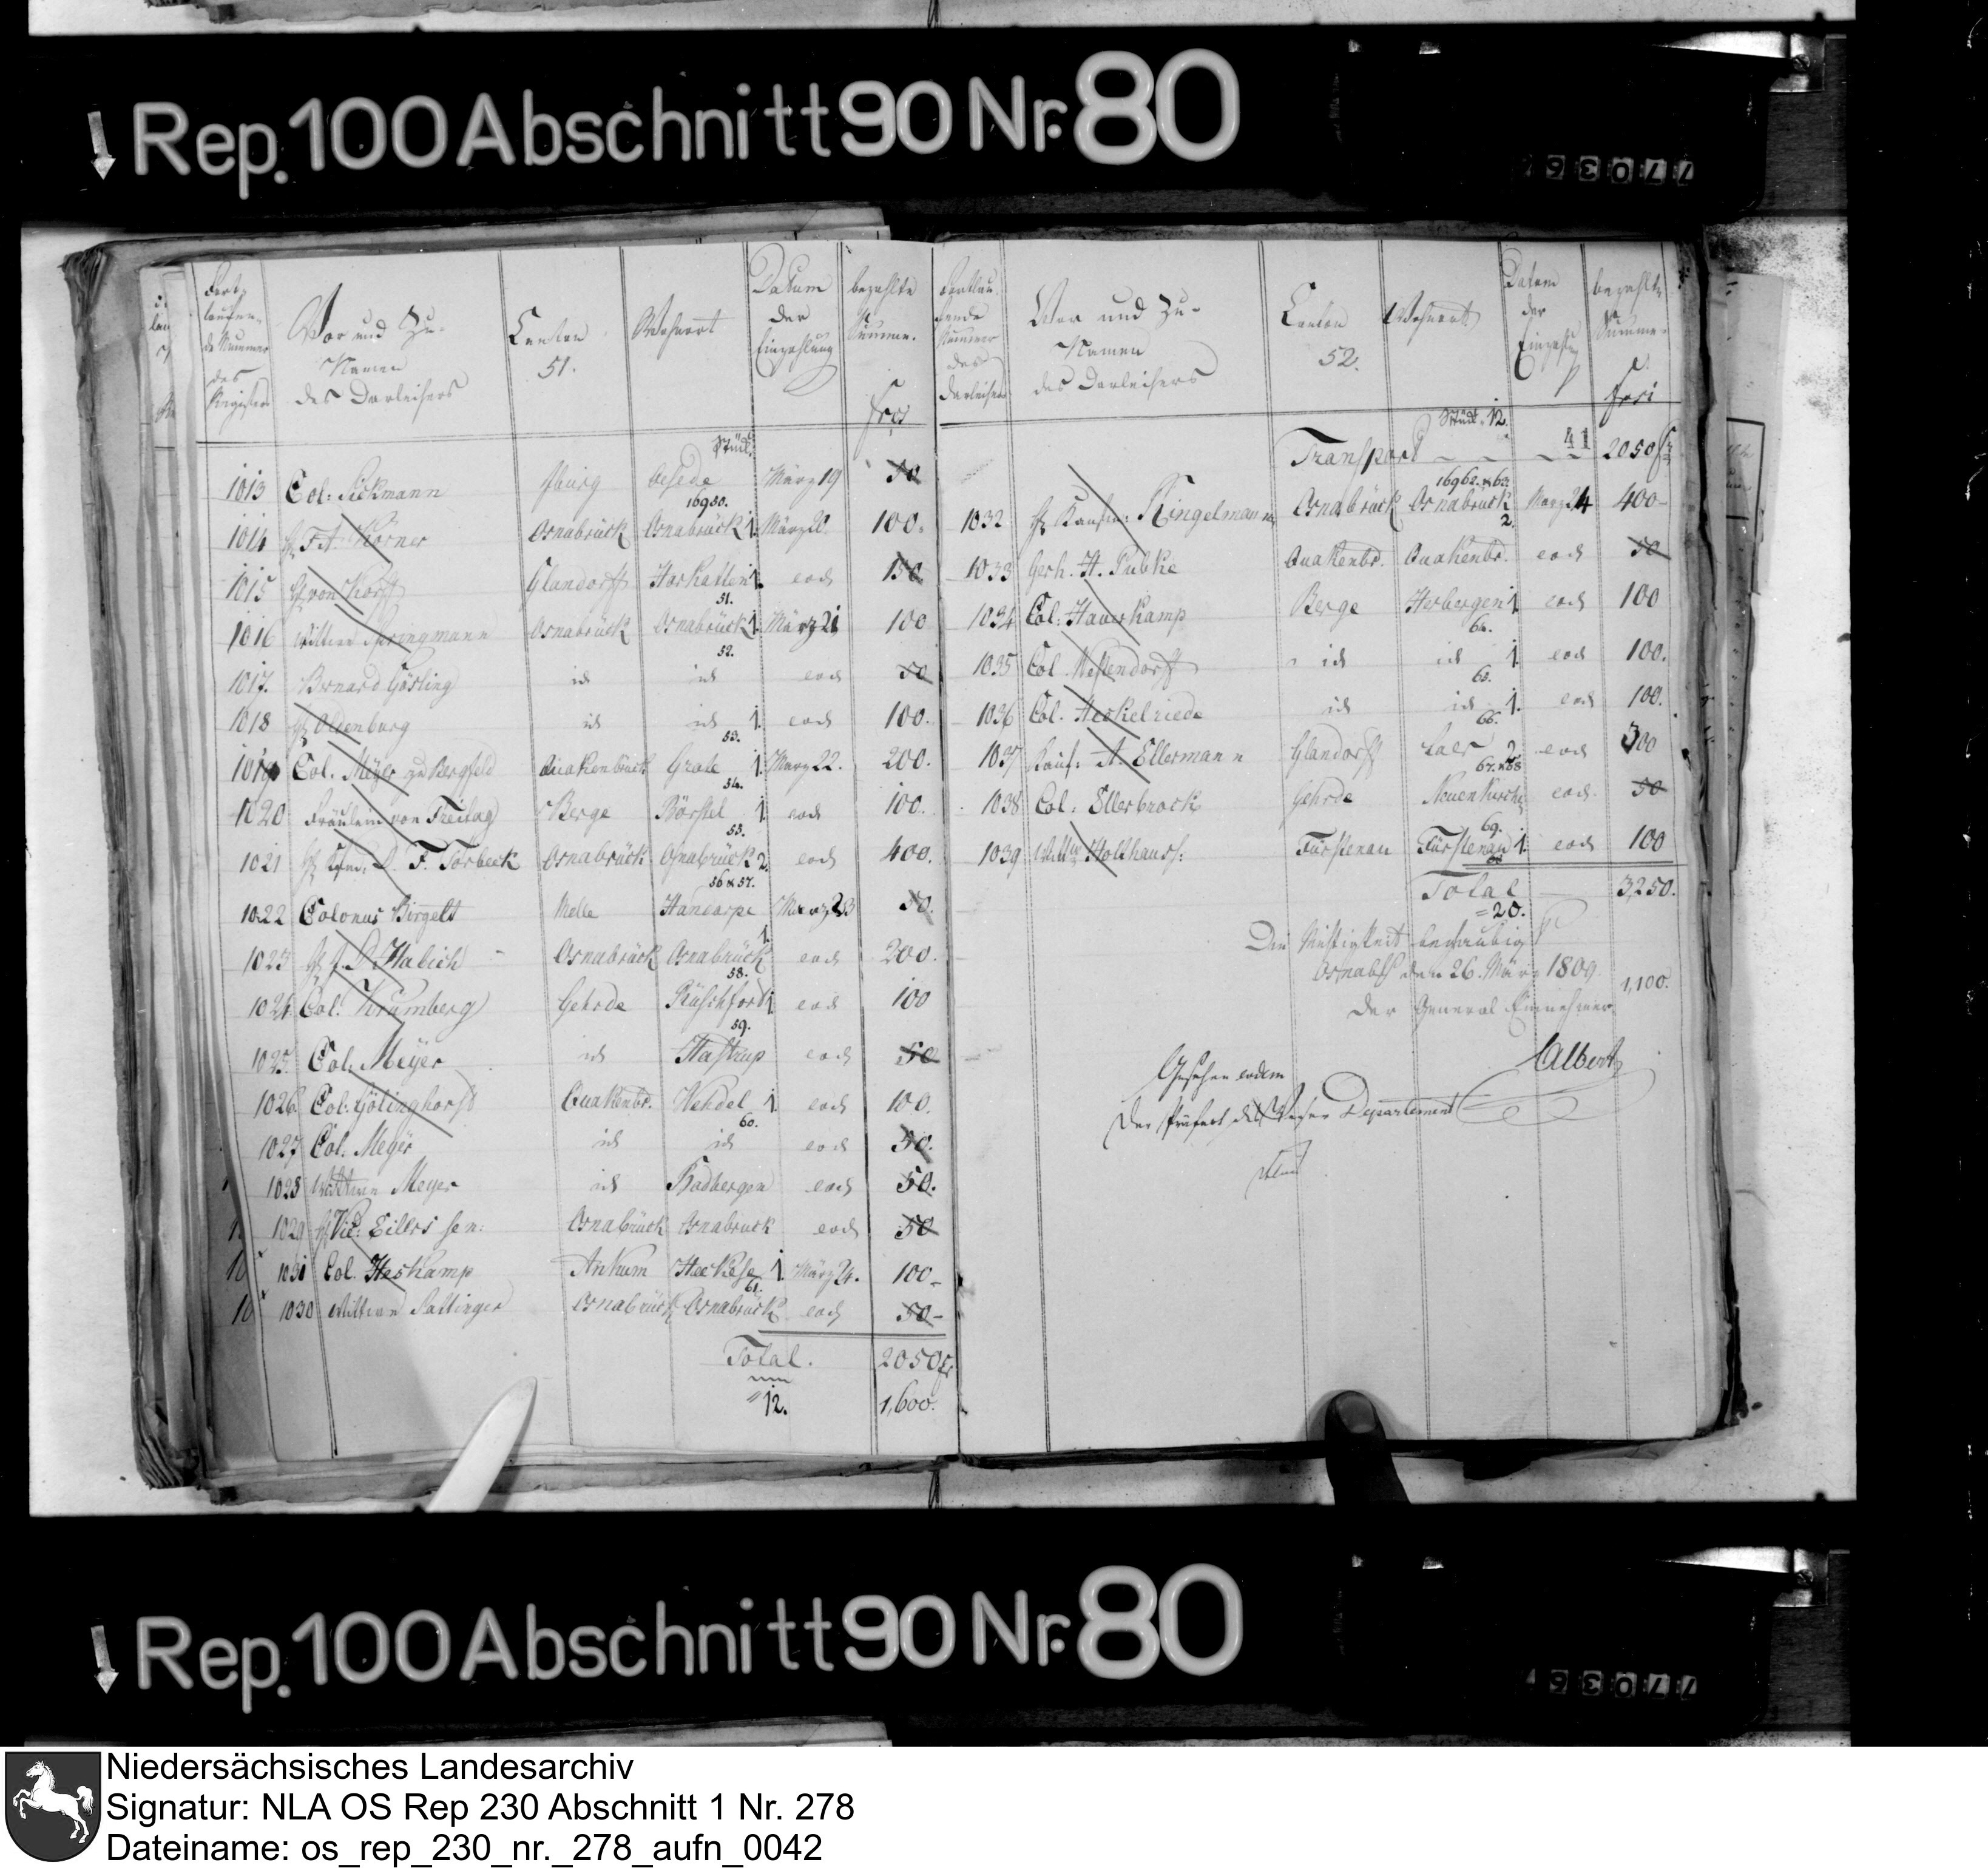 Rep. 100 Abschnitt 90 Nr. 80
Fort-
laufen-
de Nummer
des
Registers
Vor und Zu-
Namen
des Darleihers
Canton
51.
Wohnort
Datum
der
Einzahlung
bezahlte
Summe.
frcs
Stück
1013 Col: Sickmann Iburg Oesede März 19 50
16950.
1014 H F. A. Körner Osnabrück Osnabrück 1. März 20 100.
1015 H von Korff Glandorff Harkatten 1. eod 150
51.
1016 Wittwe Springmann Osnabrück Osnabrück 1. März 21 100
52.
1017. Bernard Gösling id id eod 50
1018 H Oldenburg id id 1. eod 100.
53.
1019 Col. Meyer zu Bergfeld Quakenbrück Grote 1. März 22. 200.
54.
1020 Fräulein von Freitag Berge Börstel 1 eod 100.
55.
1021 H D. F. Törbeck Osnabrück Osnabrück 2. eod 400.
56 & 57.
1022 Colonus Birgelt Melle Handarpe März 23 50.
1.
1023 H J. D. Halich Osnabrück Osnabrück eod 200.
58.
1024 Col. Krumberg Gehrde Rüschfort 1 eod 100
59.
1025 Col. Meyer id Hastrup eod 50
1026 Col: Gölinghorst Quakenbr. Wehdel 1. eod 100.
60.
1027 Col. Meyer id id eod 50.
1028 Wittwe Meyer id Badbergen eod 50.
1029 H Vic: Eilers sen: Osnabrück Osnabrück eod 50
1031 Col. Heskamp Ankum Heekese 1. März 24. 100-
61.
1030 Wittwe Sattinger Osnabrück Osnabrück eod 50-
Total. 2050 fr
12. 1,600.
Fortlau-
fende
Nummer
des
Darleihers
Vor und Zu-
Namen
des Darleihers
Canton
52.
Wohnort
Datum
der
Einzahl
bezahlte
Summe.
frcs
Stück 12.
Transport 41 2050 fr
16962. & 63.
1032 H Ringelmann Osnabrück Osnabrück März 24 400-
2.
1033 Gerh. H. Dubke Quakenbr. Quakenbr. eod 50
1034 Col: Haverkamp Berge Herbergen 1. eod 100
64.
1035 Col Westendorff id id 1. eod 100.
65.
1036 Col. Heckelriede id id 1. eod 100.
66.
1037 Kauf: A. Ellermann Glandorff Laer 2 eod 300
67. & 68
1038 Col: Ellerbrock Gehrde Neuenkirche eod. 50
69.
1039 Wittw Holthaus: Fürstenau Fürstenau 1. eod 100
Total 3,250.
=20.
Die Richtigkeit beglaubigt
Osnabk den 26. März 1809 1,100.
Der General Einnehmer
Albert
Gesehen eodem
Der Präfect des Weser Departement
Rep. 100 Abschnitt 90 Nr. 80
Niedersächsisches Landesarchiv
Signatur: NLA OS Rep 230 Abschnitt 1 Nr. 278
Dateiname: os_rep_230_nr._278_aufn_0042